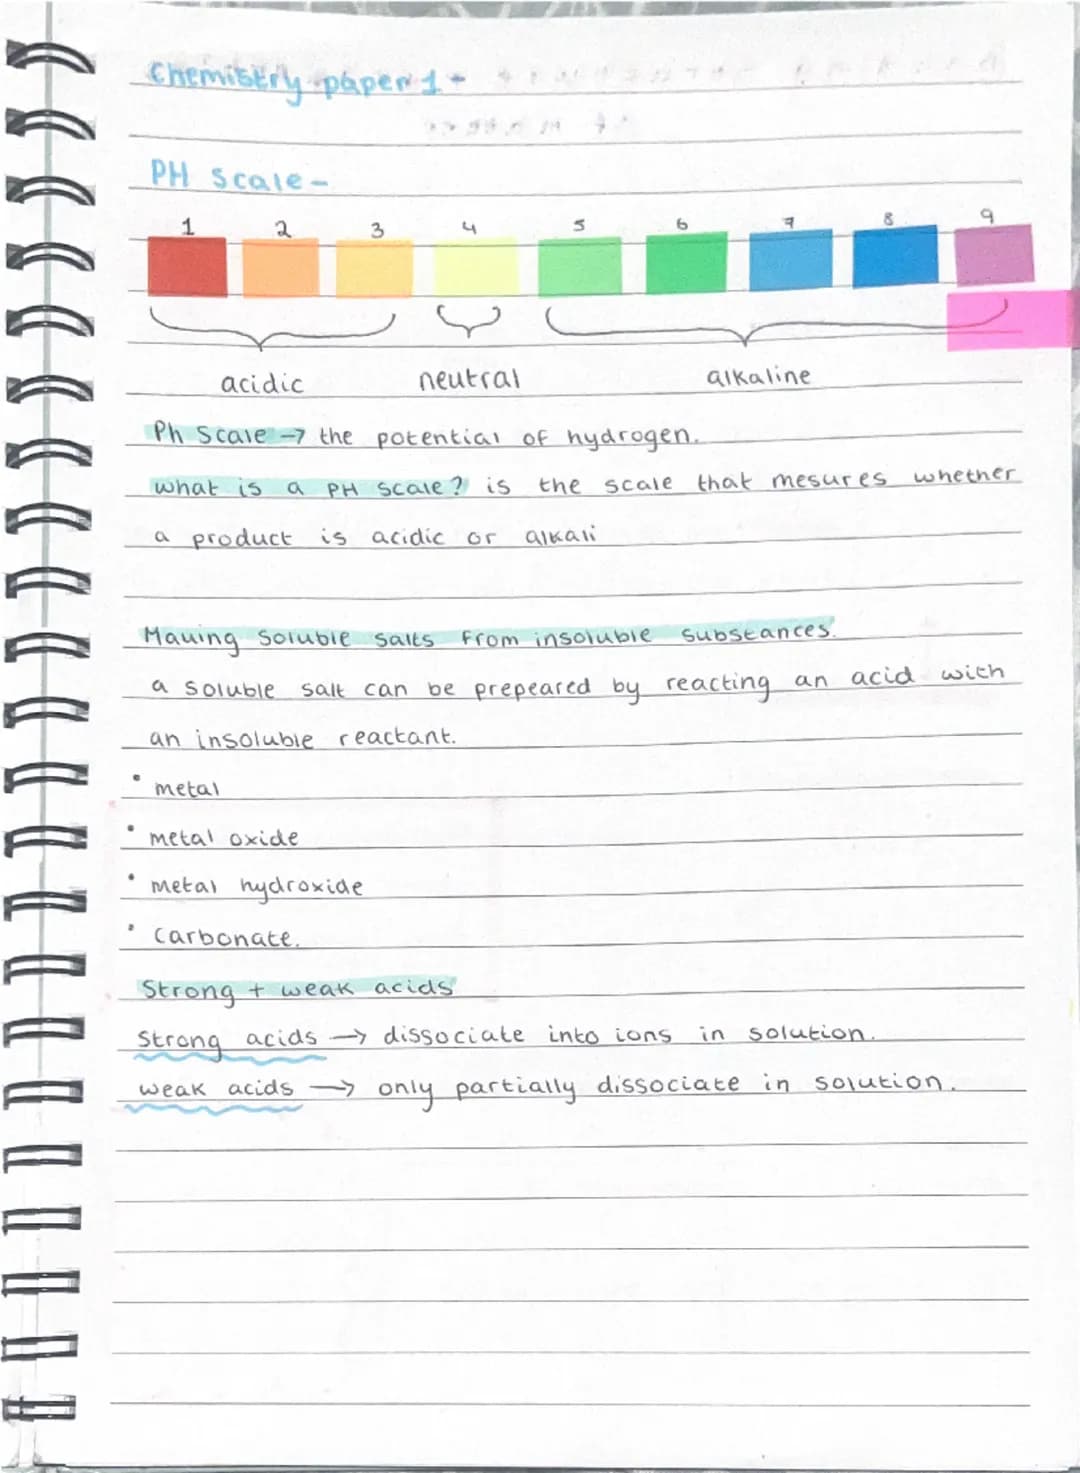 Chemistry paper 1 -
PH Scale -
1 2 3 4 5 6 7 8 9
acidic neutral alkaline
Ph Scale → the potential of hydrogen.
what is a PH scale? is the scale that mesures whether
a product is acidic or alkali
Making Soluble salts from insoluble substances.
a soluble salt can be prepeared by reacting an acid with
an insoluble reactant.
• metal
• metal oxide
• metal hydroxide
• carbonate.
Strong + weak acids
Strong acids → dissociate into ions in solution.
weak acids → only partially dissociate in solution.